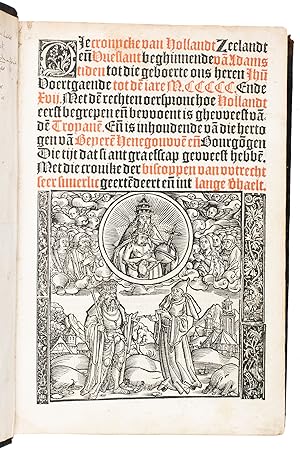 Die cronycke van Hollandt Zeelandt
eñ Vrieslant beghinnende vā Adams
tiden tot die geboerte ons heren Jhū
Voertgaende tot dē iare M.CCCCC. Ende
Xvij. Met dē rechten oerspronc hoe Hollandt
eerst begrepen eñ bewoent is gheweest vā
dē Troyanē. Eñ is inhoudende vā die hertog
gen vā Beyerē Henegouwē eñ Bourgōgen
Die tijt dat si ant graefscap geweest hebbē.
Met die cronike der biscoppen van vutrecht
seer suuerlic geextēdeert eñ int lange vhaelt.